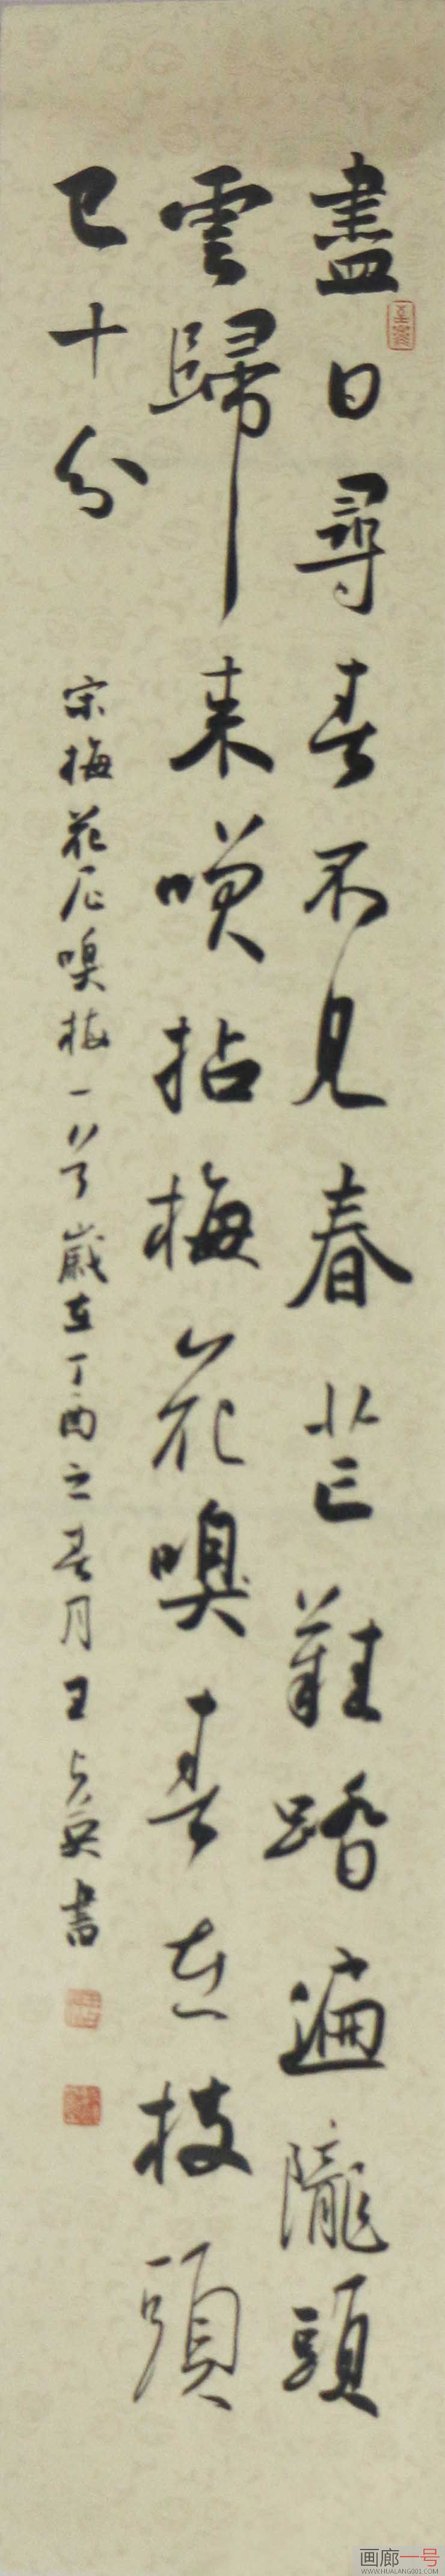 盡日尋春不見春芒鞋踏遍隴頭
雲歸來噗拈梅花嗅春在枝頭
已十分
宋梅花尼嗅梅一首歲在丁酉之春月王占英書
画廊一号
WWW.HUALANG001.COM